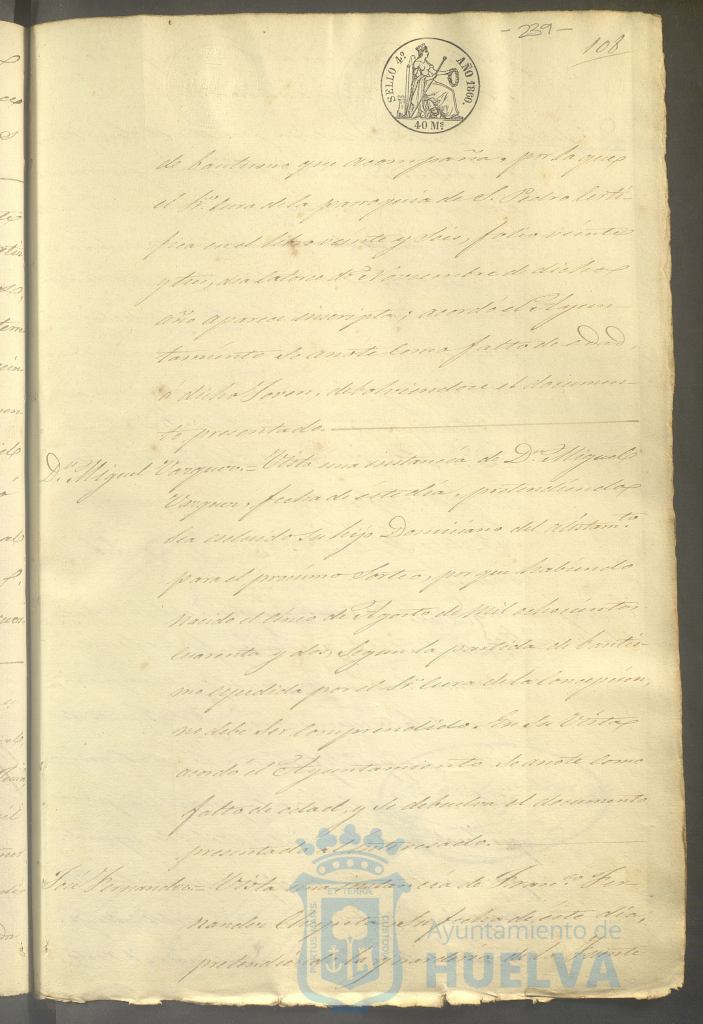 - 239 -
108
SELLO 4º AÑO 1860.
40 Ms
de bautismo que acompaña, por la que
el Sr. Cura de la parroquia de S. Pedro Certi-
fica en el libro veinte y Seis, folio veinte
y tres, dia Catorce de Noviembre de dicho
año aparece inscripto; acordó el Ayun-
tamiento se anote como falto de edad,
á dicho Joven, debolviendose el documen-
to presentado.
Dn Miguel Vazquez = Vista una instancia de Dn Miguel
Vazquez, fecha de este dia, pretendiendo
sea escluido su hijo Domiciano del alistamto
para el procsimo Sorteo, por que habiendo
nacido el cinco de Agosto de Mil ochocientos
cuarenta y dos, Segun la partida de bautis-
mo espedida por el Sr. Cura de la Concepcion,
no debe ser comprendido. En su Vista
acordó el Ayuntamiento se anote como
falto de edad y se debuelva el documento
presentado al interesado.
José Fernandez = Vista una instancia de Franco Fer-
nandez, su fecha de este dia,
pretendiendo
PORTUS MARIS ET TERRÆ CUSTODIA
Ayuntamiento de
HUELVA